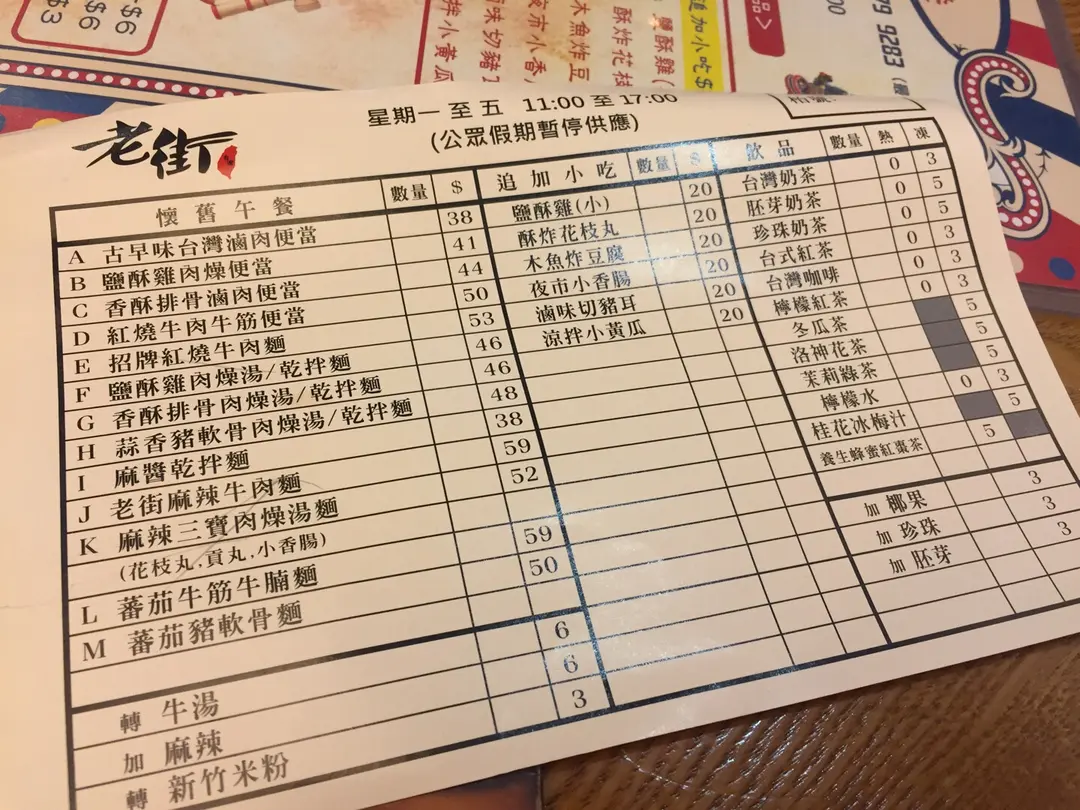 $6
$6
$3
追加小吃$
9283
品>
老街
星期一 至 五 11:00 至 17:00
(公眾假期暫停供應)
懷舊午餐 數量 $
A 古早味台灣滷肉便當 38
B 鹽酥雞肉燥便當 41
C 香酥排骨滷肉便當 44
D 紅燒牛肉牛筋便當 50
E 招牌紅燒牛肉麵 53
F 鹽酥雞肉燥湯/乾拌麵 46
G 香酥排骨肉燥湯/乾拌麵 46
H 蒜香豬軟骨肉燥湯/乾拌麵 48
I 麻醬乾拌麵 38
J 老街麻辣牛肉麵 59
K 麻辣三寶肉燥湯麵 52
(花枝丸,貢丸,小香腸)
L 蕃茄牛筋牛腩麵 59
M 蕃茄豬軟骨麵 50
轉 牛湯 6
加 麻辣 6
轉 新竹米粉 3
追加小吃 數量 $
鹽酥雞(小) 20
酥炸花枝丸 20
木魚炸豆腐 20
夜市小香腸 20
滷味切豬耳 20
涼拌小黃瓜 20
飲品 數量 熱 凍
台灣奶茶 0 3
胚芽奶茶 0 5
珍珠奶茶 0 5
台式紅茶 0 3
台灣咖啡 0 3
檸檬紅茶 0 3
冬瓜茶 5
洛神花茶 5
茉莉綠茶 5
檸檬水 0 3
桂花冰梅汁 5
養生蜂蜜紅棗茶 5
加 椰果 3
加 珍珠 3
加 胚芽 3